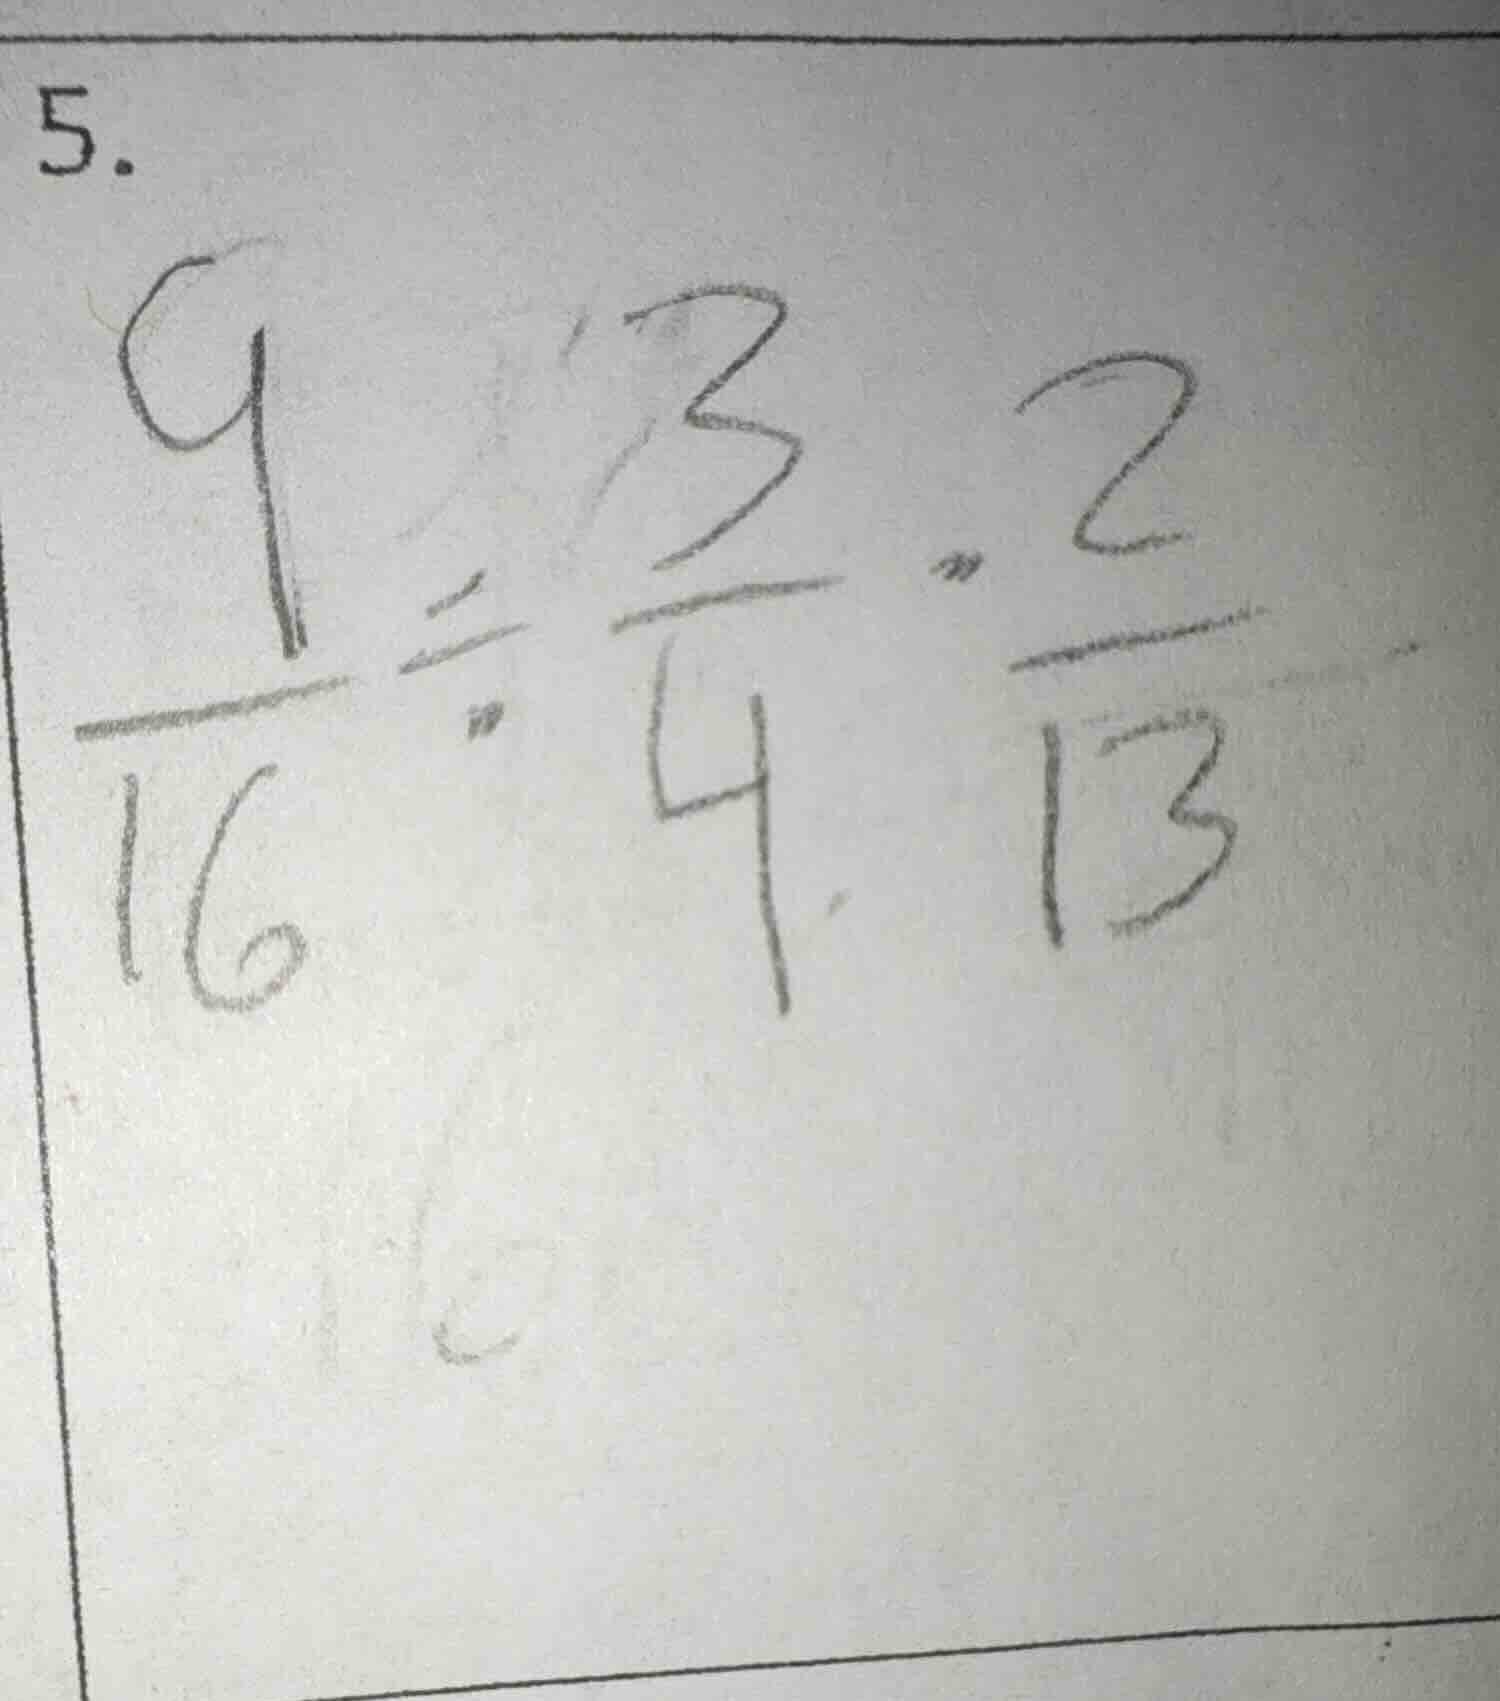 5.
9/16 ÷ 3/4 · 2/13
16